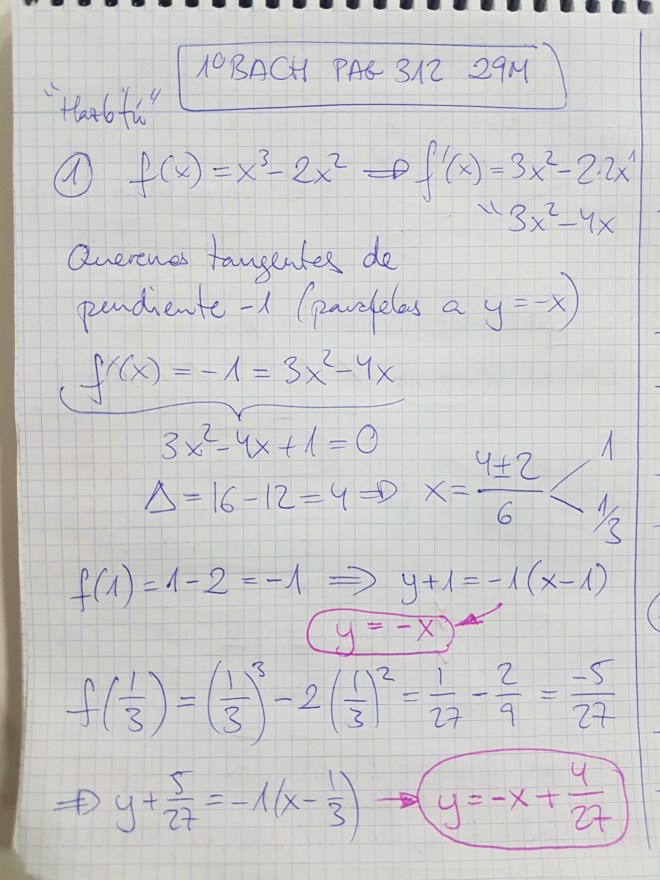 1º BACH PAG 312 29M
"Hazlo tú"
① f(x) = x³ - 2x² ⇒ f'(x) = 3x² - 2·2x¹
" 3x² - 4x
Queremos tangentes de
pendiente -1 (paralelas a y = -x)
f'(x) = -1 = 3x² - 4x
3x² - 4x + 1 = 0
Δ = 16 - 12 = 4 ⇒ x = (4±2)/6 1 1/3
f(1) = 1 - 2 = -1 ⇒ y + 1 = -1(x - 1)
y = -x
f(1/3) = (1/3)³ - 2(1/3)² = 1/27 - 2/9 = -5/27
⇒ y + 5/27 = -1(x - 1/3) → y = -x + 4/27